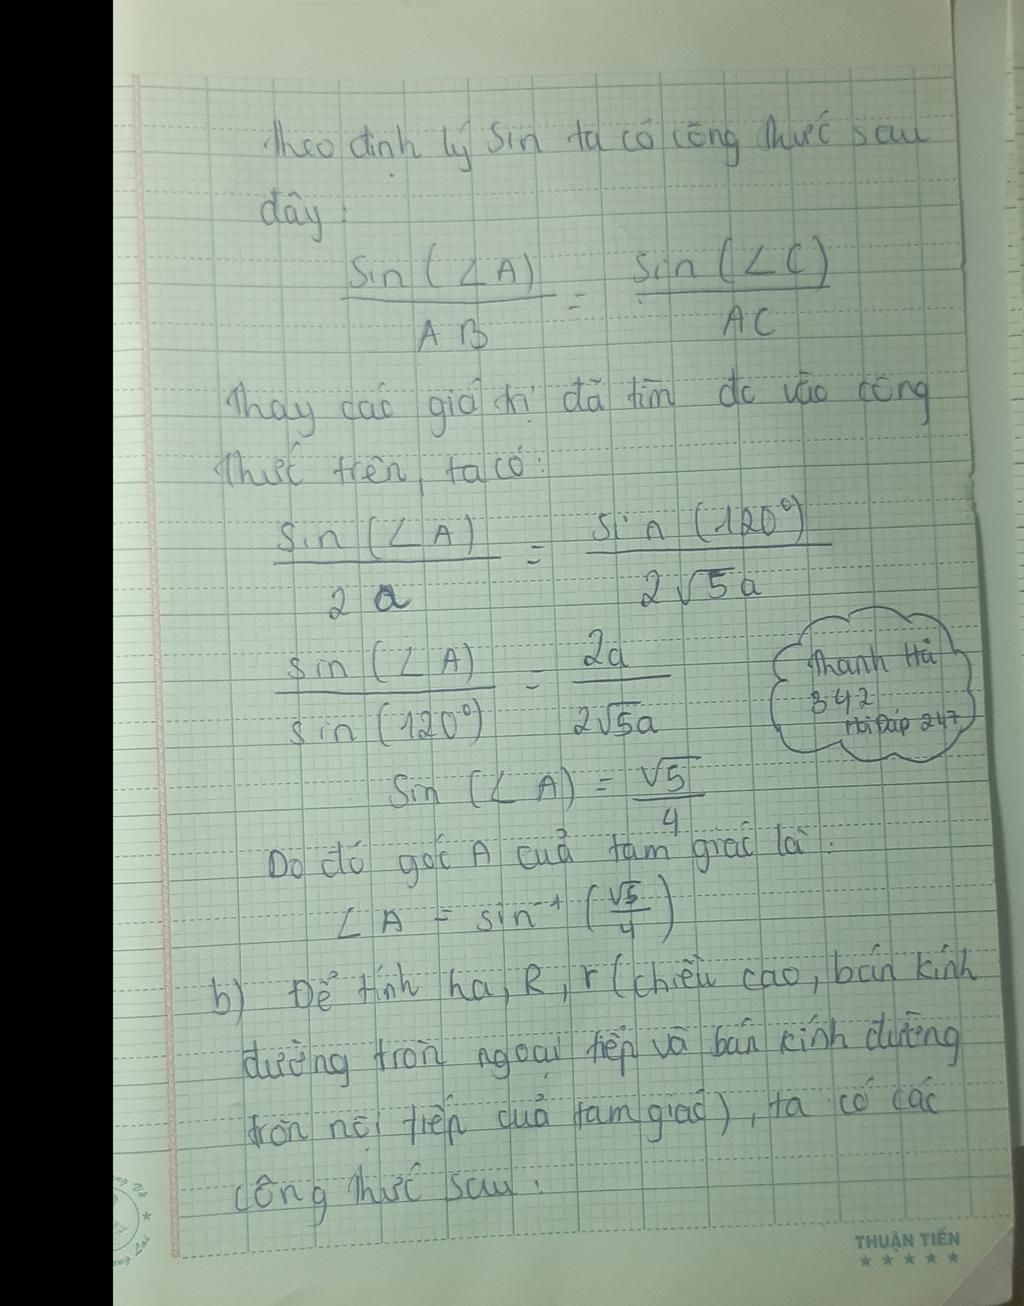 Theo định lý Sin ta có công thức sau
đây:
Sin (∠A) / AB = Sin (∠C) / AC
Thay các giá trị đã tìm đc vào công
thức trên, ta có:
Sin (∠A) / 2a = Sin (120°) / 2√5a
Sin (∠A) / Sin (120°) = 2a / 2√5a
Thanh Hà
342
Hỏi Đáp 247
Sin (∠A) = √5 / 4
Do đó góc A của tam giác là:
∠A = sin⁻¹ (√5 / 4)
b) Để tính ha, R, r (chiều cao, bán kính
đường tròn ngoại tiếp và bán kính đường
tròn nội tiếp của tam giác), ta có các
công thức sau:
THUẬN TIẾN